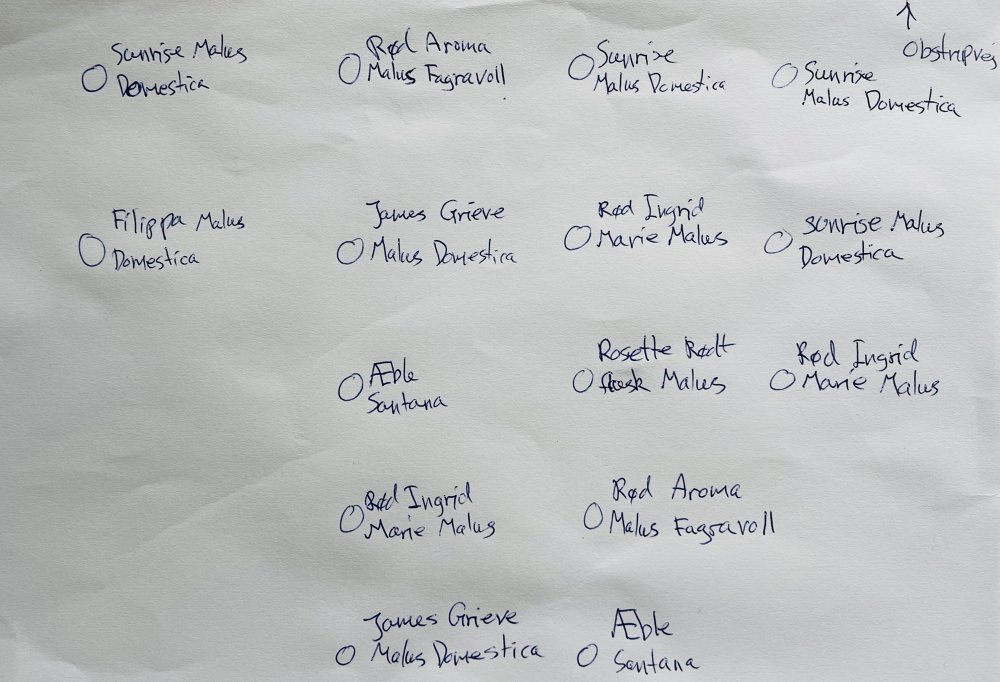 Obstripvej
Sunrise Malus
Domestica
Rød Aroma
Malus Fagravoll
Sunrise
Malus Domestica
Sunrise
Malus Domestica
Filippa Malus
Domestica
James Grieve
Malus Domestica
Rød Ingrid
Marie Malus
Sunrise Malus
Domestica
Æble
Santana
Rosette Rødt
Malus
Rød Ingrid
Marie Malus
Rød Ingrid
Marie Malus
Rød Aroma
Malus Fagravoll
James Grieve
Malus Domestica
Æble
Santana